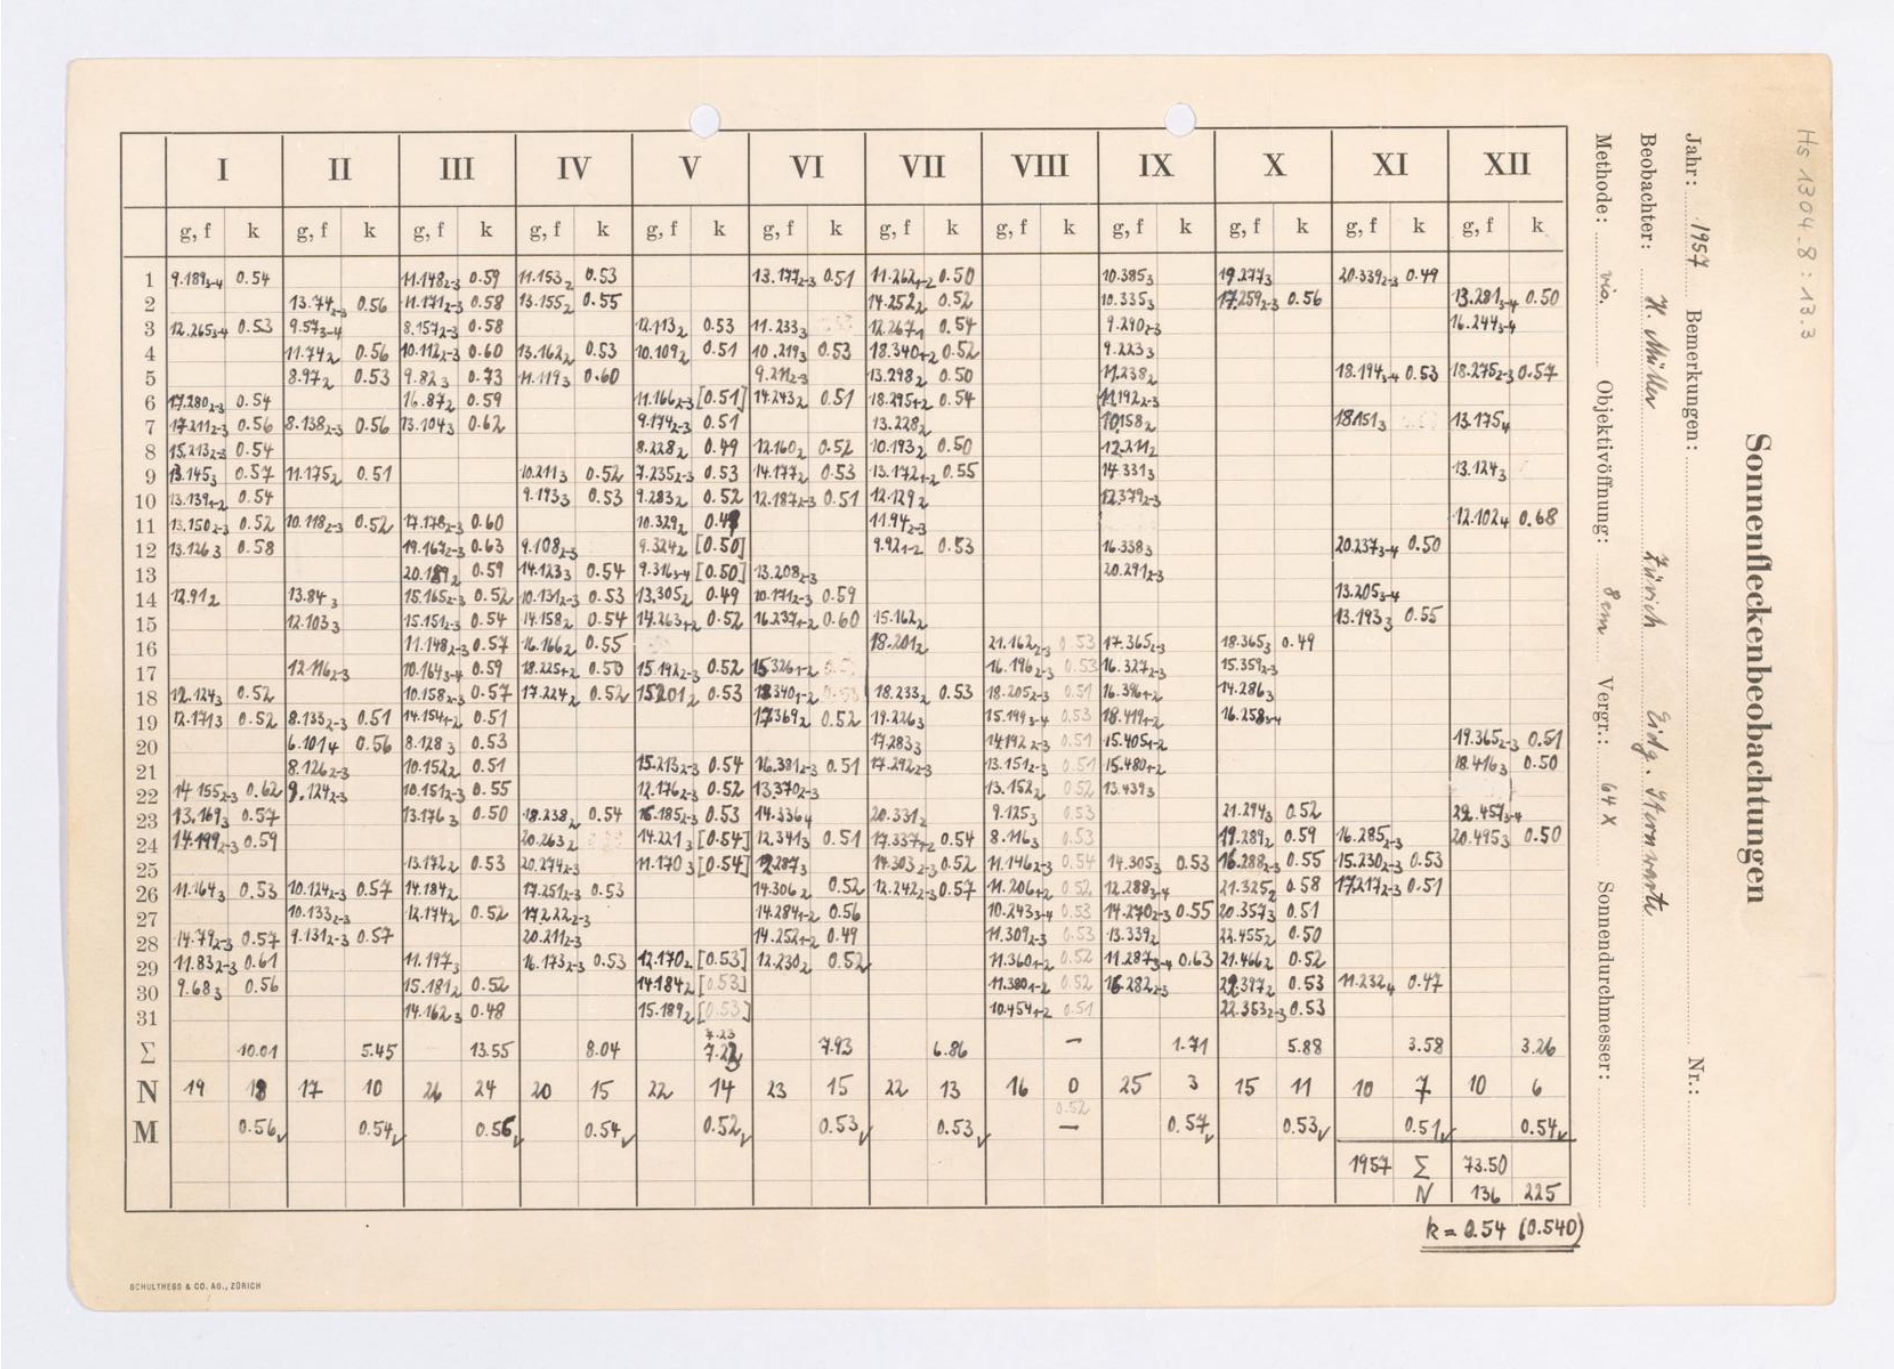 Hs 1304.8 : 13.3
Sonnenfleckenbeobachtungen
Jahr: 1957 Bemerkungen: Nr.:
Beobachter: H. Müller Zürich Eidg. Sternwarte
Methode: vis. Objektivöffnung: 8 cm Vergr.: 64 x Sonnendurchmesser:
I II III IV V VI VII VIII IX X XI XII
g, f k g, f k g, f k g, f k g, f k g, f k g, f k g, f k g, f k g, f k g, f k g, f k
1 9.189 3-4 0.54 11.148 2-3 0.59 11.153 2 0.53 13.177 2-3 0.51 11.262 1-2 0.50 10.385 3 19.277 3 20.339 2-3 0.49
2 13.74 2-3 0.56 11.171 2-3 0.58 13.155 2 0.55 14.252 2 0.52 10.335 3 17.259 2-3 0.56 13.281 3-4 0.50
3 12.265 3-4 0.53 9.57 3-4 8.157 2-3 0.58 12.113 2 0.53 11.233 3 12.267 1 0.54 9.290 2-3 16.244 3-4
4 11.74 2 0.56 10.112 2-3 0.60 13.162 2 0.53 10.109 2 0.51 10.219 3 0.53 18.340 1-2 0.52 9.223 3
5 8.97 2 0.53 9.82 3 0.73 11.119 3 0.60 9.211 2-3 13.298 2 0.50 11.238 2 18.194 3-4 0.53 18.275 2-3 0.57
6 17.280 2-3 0.54 16.87 2 0.59 11.166 2-3 [0.51] 14.243 2 0.51 18.295 1-2 0.54 11.192 2-3
7 17.211 2-3 0.56 8.138 2-3 0.56 13.104 3 0.62 9.174 2-3 0.51 13.228 2 10.158 2 18.151 3 13.175 4
8 15.213 2-3 0.54 8.228 2 0.49 12.160 2 0.52 10.193 2 0.50 12.211 2
9 13.145 3 0.57 11.175 2 0.51 10.211 3 0.52 7.235 2-3 0.53 14.177 2 0.53 13.172 1-2 0.55 14.331 3 13.124 3
10 13.139 1-2 0.54 9.193 3 0.53 9.283 2 0.52 12.187 2-3 0.51 12.129 2 12.379 2-3
11 13.150 2-3 0.52 10.118 2-3 0.52 17.178 2-3 0.60 10.329 2 11.94 2-3 12.102 4 0.68
12 13.126 3 0.58 19.167 2-3 0.63 9.108 2-3 9.324 2 [0.50] 9.92 1-2 0.53 16.338 3 20.237 3-4 0.50
13 20.189 2 0.59 14.123 3 0.54 9.316 3-4 [0.50] 13.208 2-3 20.291 2-3
14 12.91 2 13.84 3 15.165 2-3 0.52 10.131 2-3 0.53 13.305 2 0.49 10.171 2-3 0.59 13.205 3-4
15 12.103 3 15.151 2-3 0.54 14.158 2 0.54 14.263 1-2 0.52 16.237 1-2 0.60 15.162 2 13.193 3 0.55
16 11.148 2-3 0.57 16.166 2 0.55 18.201 2 21.162 2-3 0.53 17.365 2-3 18.365 3 0.49
17 12.116 2-3 10.164 3-4 0.59 18.225 1-2 0.50 15.192 2-3 0.52 15.326 1-2 16.196 2-3 0.53 16.327 2-3 15.359 2-3
18 12.124 3 0.52 10.158 2-3 0.57 17.224 2 0.52 15.201 2 0.53 18.340 1-2 18.233 2 0.53 18.205 2-3 0.51 16.396 1-2 14.286 3
19 12.171 3 0.52 8.133 2-3 0.51 14.154 1-2 0.51 17.369 2 0.52 19.226 3 15.199 3-4 0.53 18.419 1-2 16.258 3-4
20 6.101 4 0.56 8.128 3 0.53 17.283 3 14.192 2-3 0.51 15.405 1-2 19.365 2-3 0.51
21 8.126 2-3 10.152 2 0.51 15.213 2-3 0.54 16.381 2-3 0.51 17.292 2-3 13.151 2-3 0.51 15.480 1-2 18.416 3 0.50
22 14.155 2-3 0.62 9.124 2-3 10.151 2-3 0.55 12.176 2-3 0.52 13.370 2-3 13.152 2 0.52 13.439 3
23 13.169 3 0.57 13.176 3 0.50 18.238 2 0.54 16.185 2-3 0.53 14.336 4 20.331 2 9.125 3 0.53 21.294 3 0.52 22.457 3-4
24 14.199 2-3 0.59 20.263 2 14.221 3 [0.54] 12.341 3 0.51 17.337 1-2 0.54 8.116 3 0.53 19.289 2 0.59 16.285 2-3 20.495 3 0.50
25 13.172 2 0.53 20.274 2-3 11.170 3 [0.54] 12.287 3 14.303 2-3 0.52 11.146 2-3 0.54 14.305 3 0.53 16.288 2-3 0.55 15.230 2-3 0.53
26 11.164 3 0.53 10.124 2-3 0.57 14.184 2 17.251 2-3 0.53 14.306 2 0.52 12.242 2-3 0.57 11.206 1-2 0.52 12.288 3-4 21.325 2 0.58 17.217 2-3 0.51
27 10.133 2-3 12.174 2 0.52 17.222 2-3 14.284 1-2 0.56 10.243 3-4 0.53 14.270 2-3 0.55 20.357 3 0.51
28 14.79 2-3 0.57 9.131 2-3 0.57 20.211 2-3 14.252 1-2 0.49 11.309 2-3 0.53 13.339 2 22.455 2 0.50
29 11.83 2-3 0.61 11.197 3 16.173 2-3 0.53 12.170 2 [0.53] 12.230 2 0.52 11.360 1-2 0.52 11.287 3-4 0.63 21.466 2 0.52
30 9.68 3 0.56 15.181 2 0.52 14.184 2 [0.53] 11.380 1-2 0.52 16.282 2-3 22.397 2 0.53 11.232 4 0.47
31 14.162 3 0.48 15.189 2 [0.53] 10.454 1-2 0.51 22.353 2-3 0.53
7.23
Σ 10.01 5.45 13.55 8.04 7.93 6.86 — 1.71 5.88 3.58 3.26
N 19 18 17 10 26 24 20 15 22 14 23 15 22 13 16 0 25 3 15 11 10 7 10 6
0.52
M 0.56 0.54 0.56 0.54 0.52 0.53 0.53 — 0.57 0.53 0.51 0.54
1957 Σ 73.50
N 136 225
k = 0.54 (0.540)
SCHULTHESS & CO. AG., ZÜRICH